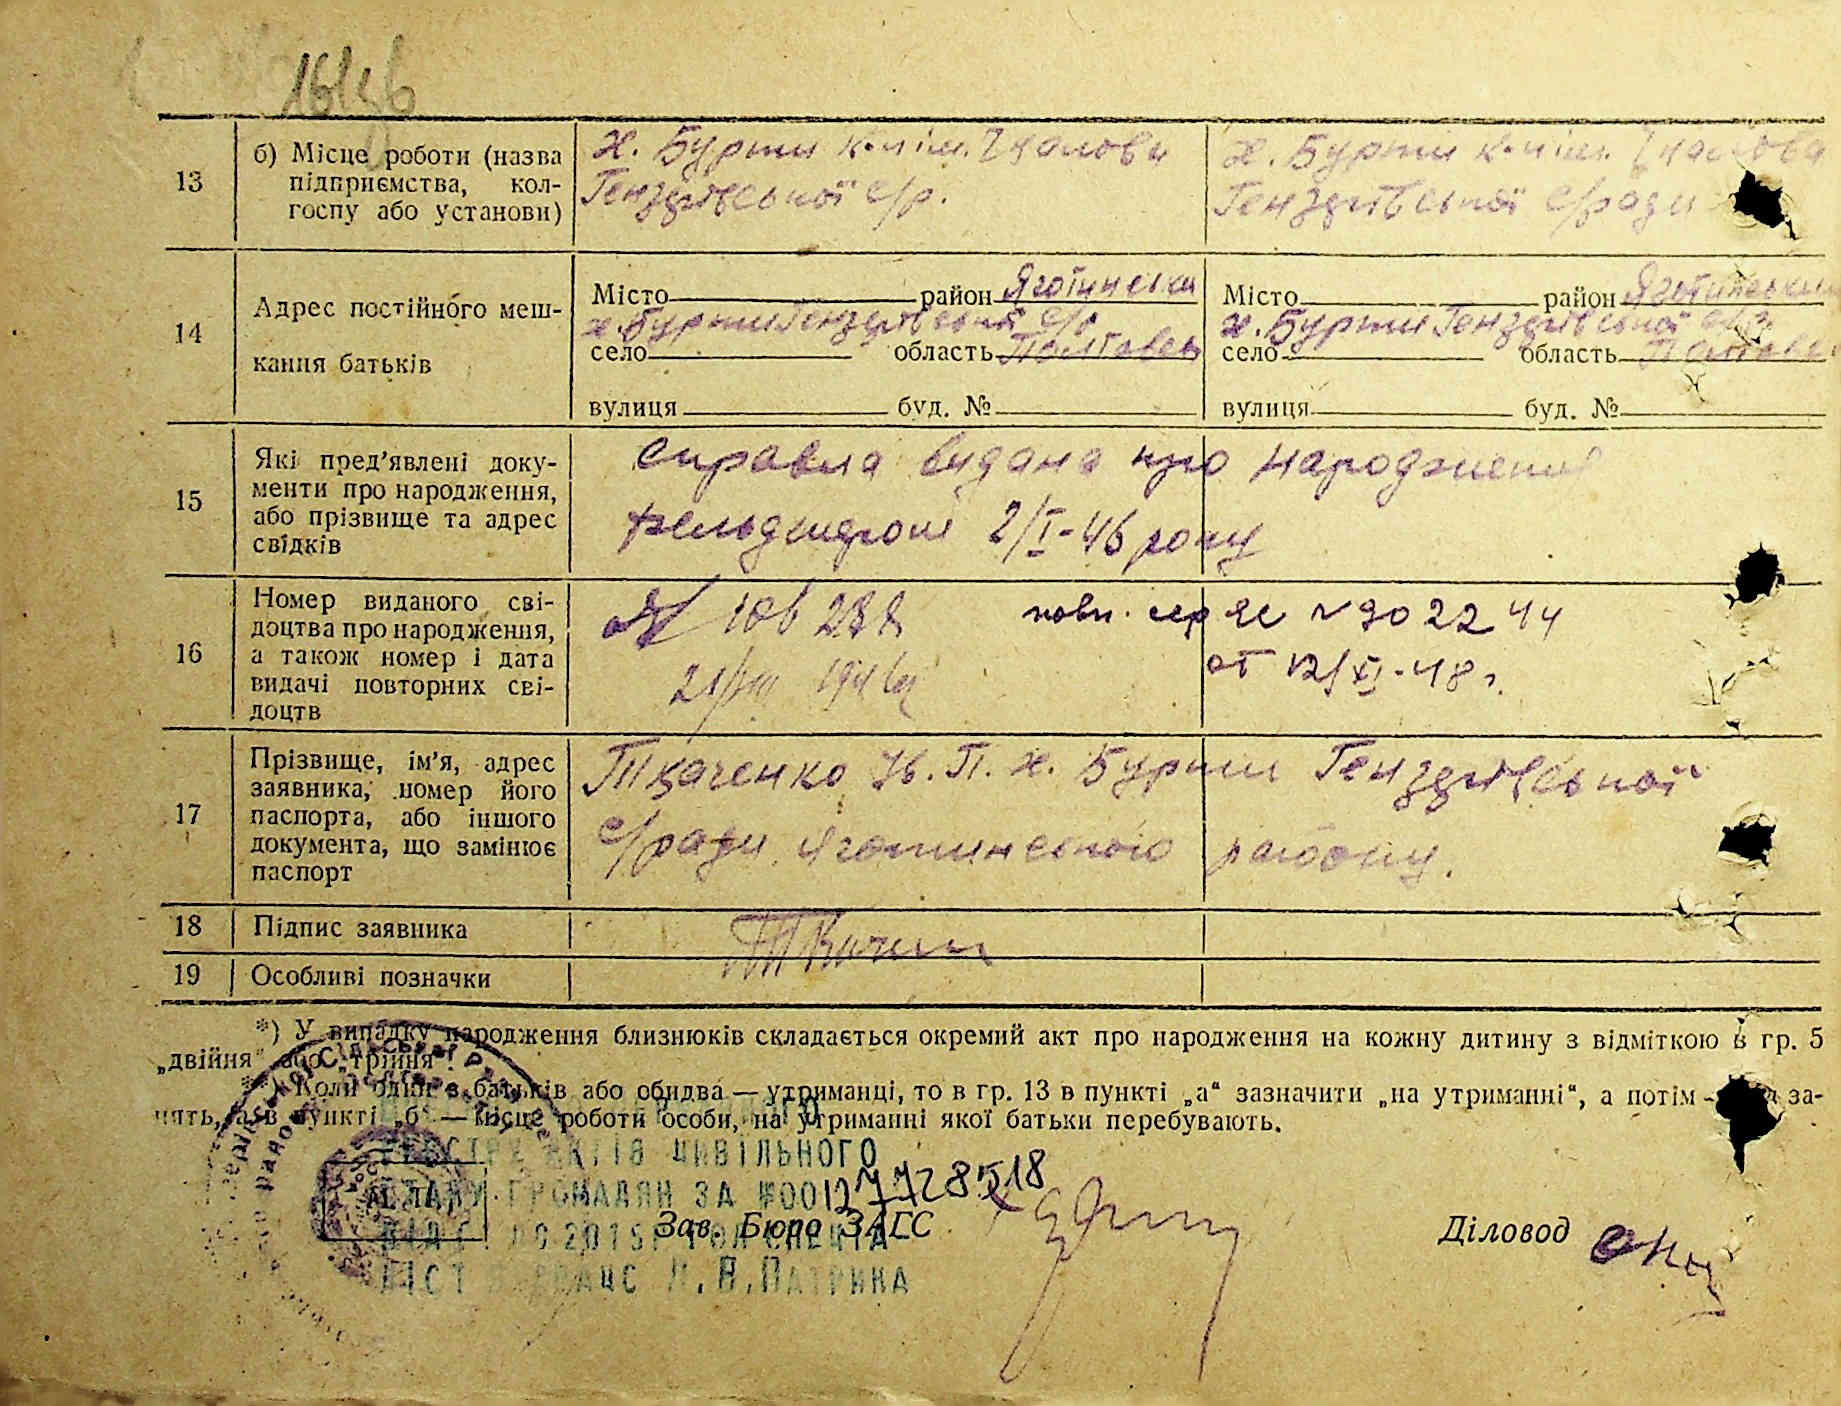 13
б) Місце роботи (назва
підприємства, кол-
госпу або установи)
х. Бурти к-п ім. Чкалова
Гензерівської с/р.
х. Бурти к-п ім. Чкалова
Гензерівської с/ради
14
Адрес постійного меш-
кання батьків
Місто район Яготинськи
х. Бурти Гензерівської с/р
село область Полтавсь
вулиця буд. №
Місто район Яготинський
х. Бурти Гензерівської с/р
село область Полтавсь
вулиця буд. №
15
Які пред’явлені доку-
менти про народження,
або прізвище та адрес
свідків
Справка видана про народження
фельдшером 2/I-46 року
16
Номер виданого сві-
доцтва про народження,
а також номер і дата
видачі повторних сві-
доцтв
повт. сер ЯС № 902244
от 12/XI-48 г.
17
Прізвище, ім’я, адрес
заявника, номер його
паспорта, або іншого
документа, що замінює
паспорт
Ткаченко Ів. П. х. Бурти Гензерівської
с/ради Яготинського району.
18
Підпис заявника
19
Особливі позначки
*) У випадку народження близнюків складається окремий акт про народження на кожну дитину з відміткою в гр. 5
„двійня“ або „трійня“.
**) Коли один з батьків або обидва — утриманці, то в гр. 13 в пункті „а“ зазначити „на утриманні“, а потім — за-
нять, а в пункті „б“ — місце роботи особи, на утриманні якої батьки перебувають.
ЦИВІЛЬНОГО
СТАНУ ГРОМАДЯН ЗА №00127728518
Зав. Бюро ЗАГС
Діловод